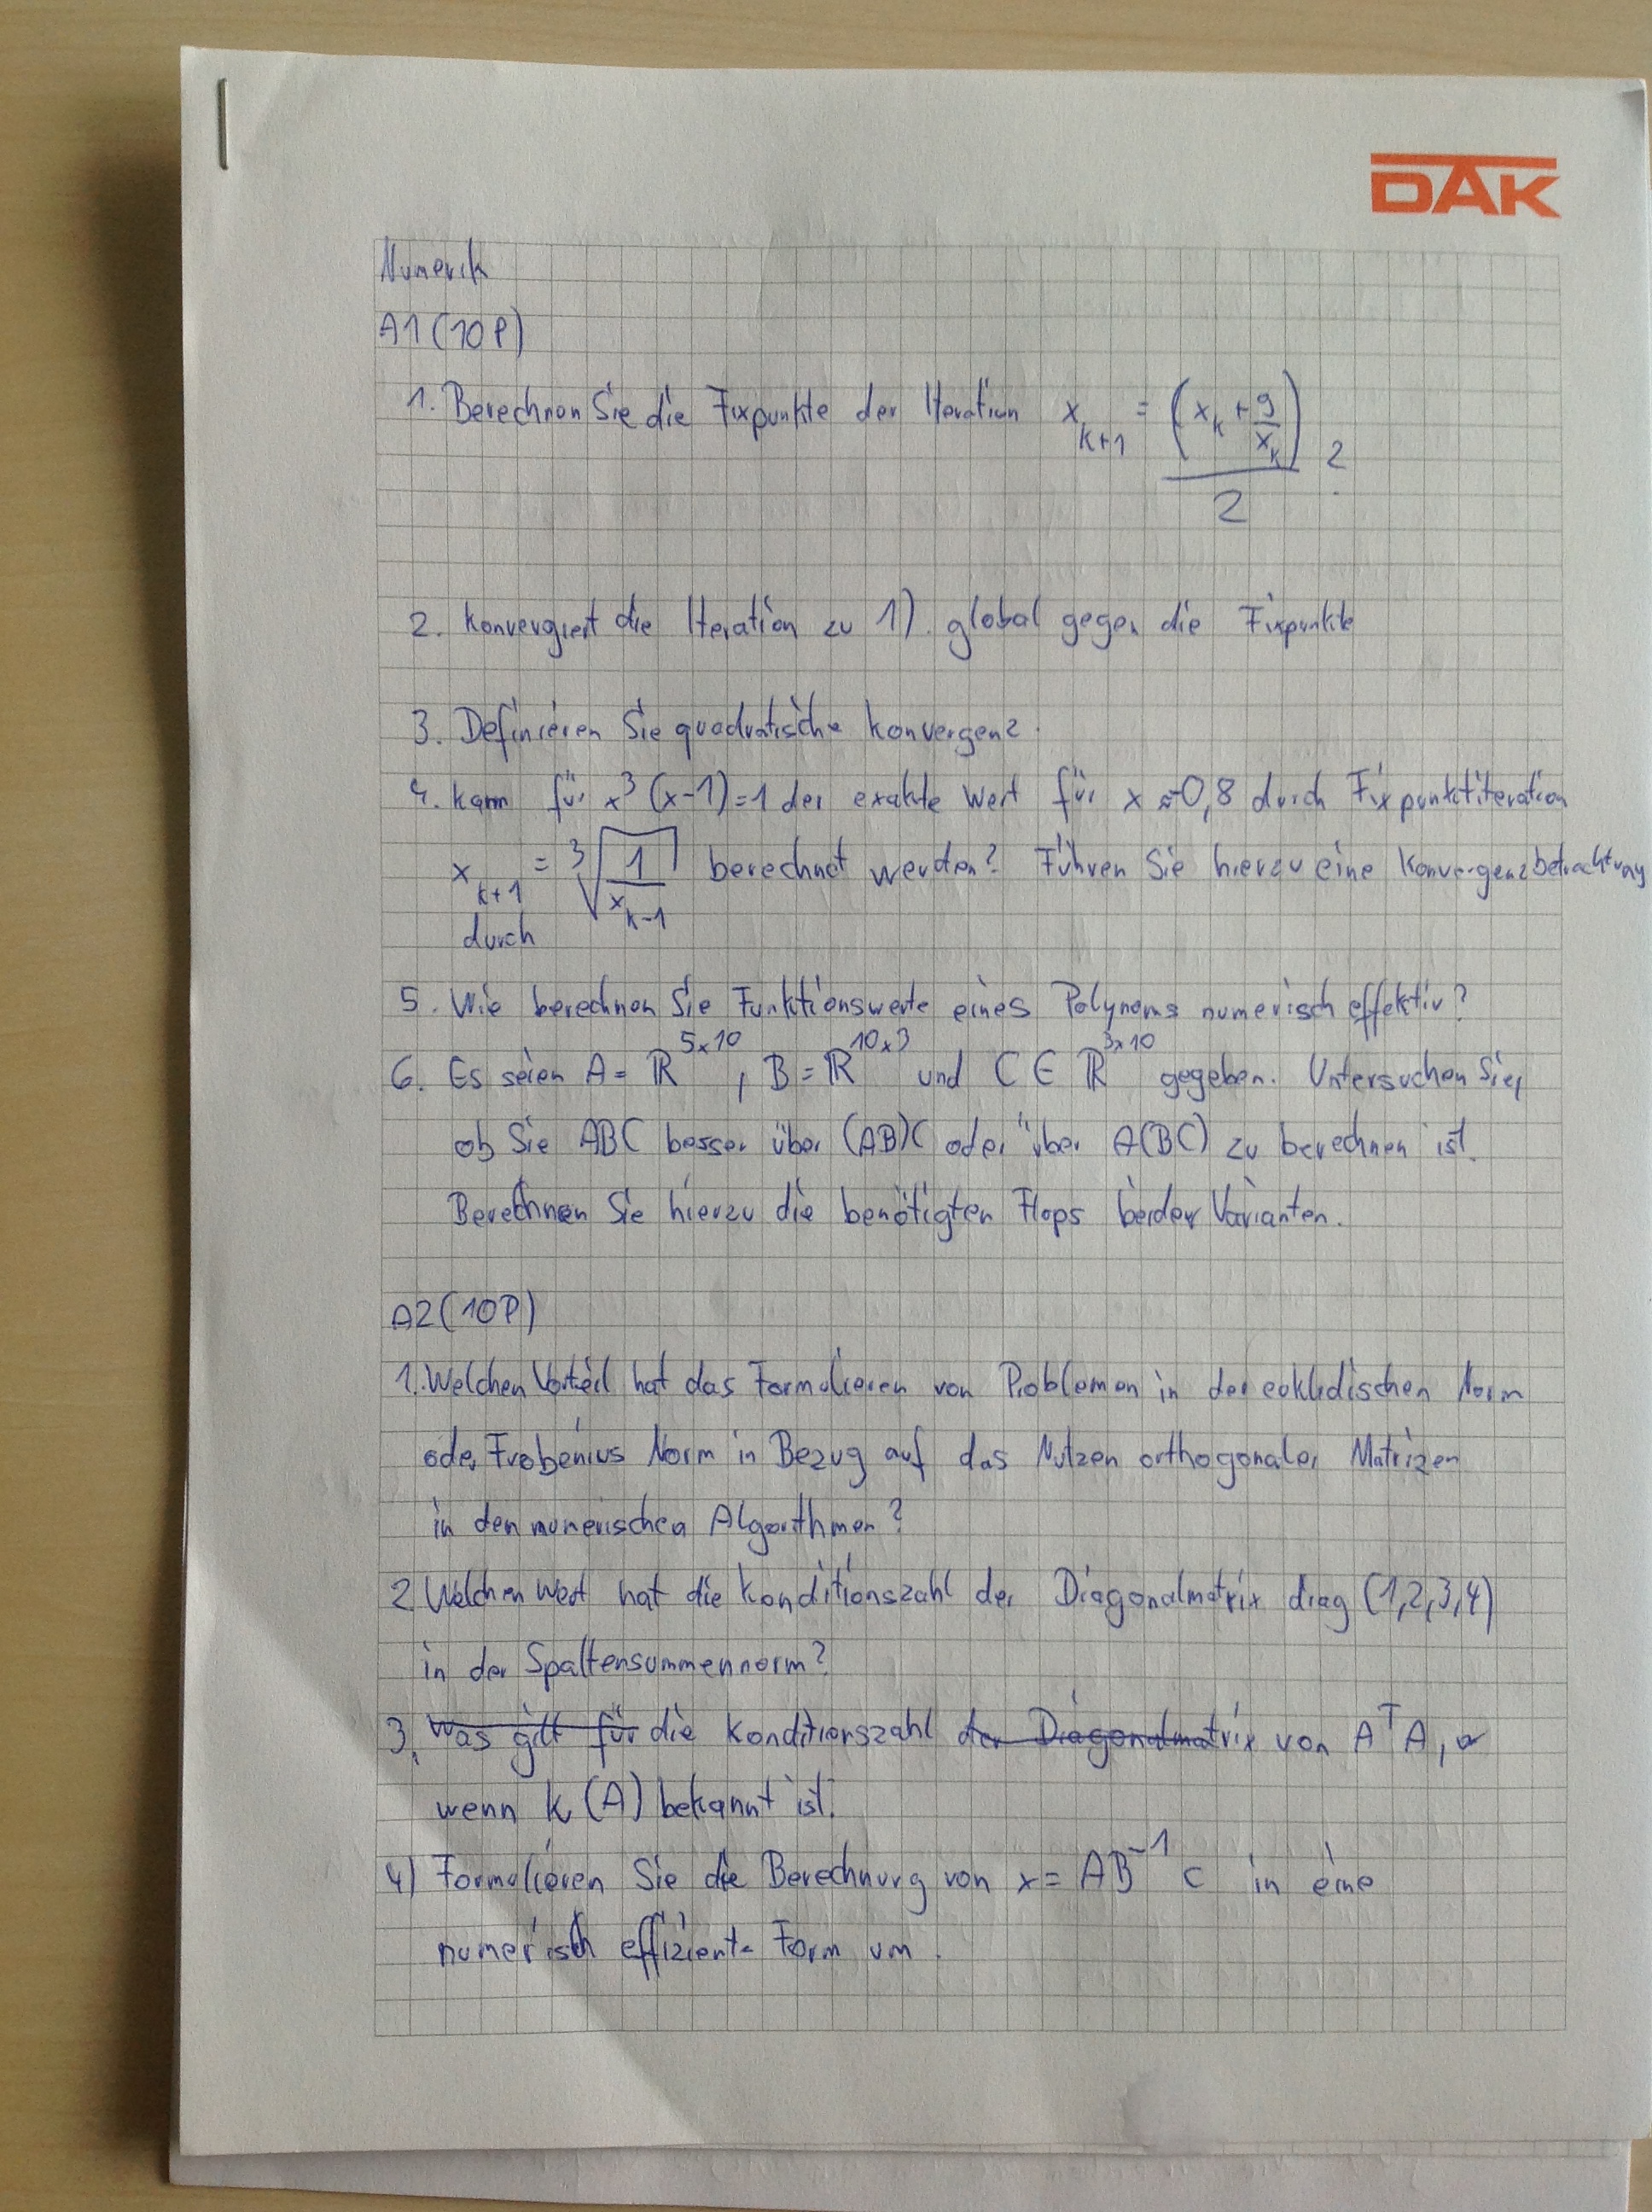 DAK
Numerik
A1 (10P)
1. Berechnen Sie die Fixpunkte der Iteration x_{k+1} = (x_k + 9/x_k) / 2 ?
2. Konvergiert die Iteration zu 1). global gegen die Fixpunkte
3. Definieren Sie quadratische Konvergenz.
4. Kann für x³ (x-1)=1 der exakte Wert für x ≈ -0,8 durch Fixpunktiteration
x_{k+1} = ³√(1/x_{k-1}) berechnet werden? Führen Sie hierzu eine Konvergenzbetrachtung
durch
5. Wie berechnen Sie Funktionswerte eines Polynoms numerisch effektiv?
6. Es seien A = ℝ^{5x10}, B = ℝ^{10x3} und C ∈ ℝ^{3x10} gegeben. Untersuchen Sie,
ob Sie ABC besser über (AB)C oder über A(BC) zu berechnen ist.
Berechnen Sie hierzu die benötigten Flops beider Varianten.
A2 (10P)
1. Welchen Vorteil hat das Formulieren von Problemen in der euklidischen Norm
oder Frobenius Norm in Bezug auf das Nutzen orthogonaler Matrizen
in den numerischen Algorithmen?
2 Welchen Wert hat die Konditionszahl der Diagonalmatrix diag (1,2,3,4)
in der Spaltensummennorm?
3. Was gilt für die Konditionszahl der Diagonalmatrix von A^T A,
wenn K (A) bekannt ist.
4) Formulieren Sie die Berechnung von x = AB^{-1} c in eine
numerisch effiziente Form um.